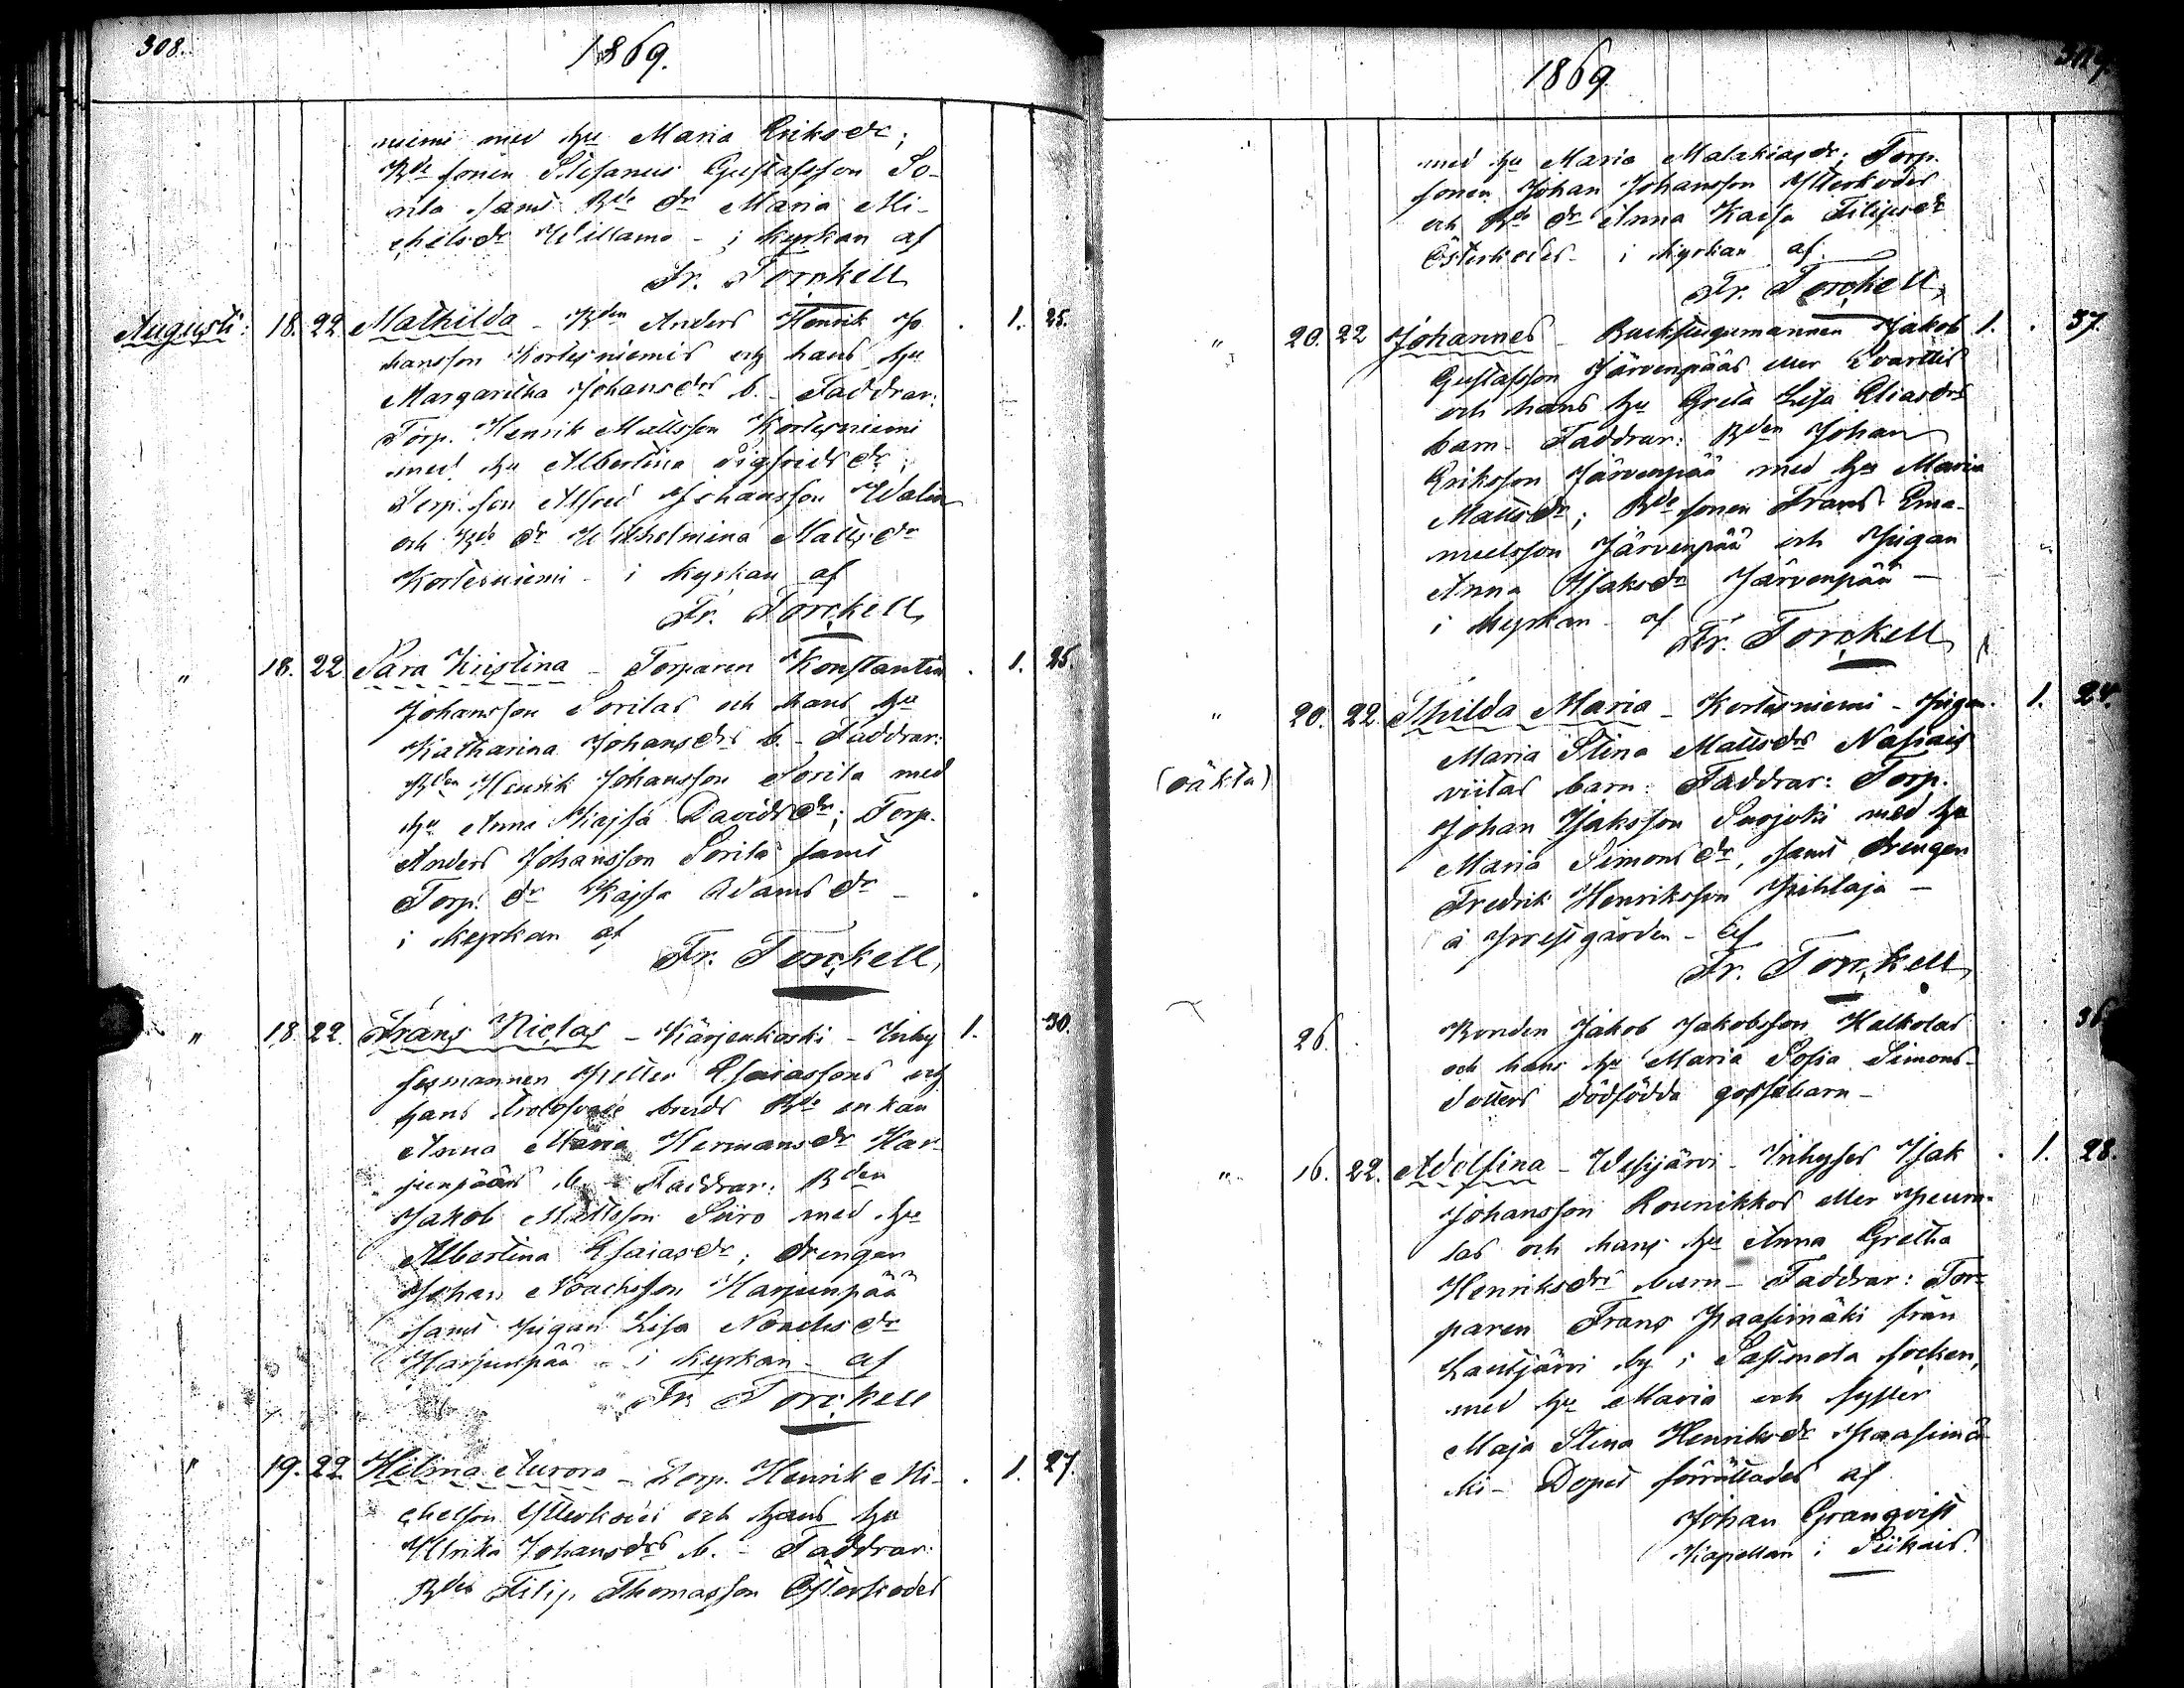 308.
1869.
niemi med hu Maria Eriksdr;
Bde sonen Stefanus Gustafsson So-
rila samt Bde dr Maria Mi-
chelsdr Willamo - i kyrkan af
Fr. Torckell
Augusti: 18. 22 Mathilda - Bden Anders Henrik Jo . 1. 25.
hansson Kortesniemis och hans hu
Margaretha Johansdrs b. - Faddrar:
Torp. Henrik Mattsson Kortesniemi
med hu Albertina Sigfridsdr;
Torp. son Alfred Johansson Walin
och Bde dr Wilhelmina Mattsdr
Kortesniemi - i kyrkan af
Fr. Torckell
" 18. 22 Sara Kristina - Torparen Konstantin . 1. 25.
Johansson Sorilas och hans hu
Katharina Johansdrs b. - Faddrar:
Bden Henrik Johansson Sorila med
hu Anna Kajsa Davidsdr; Torp.
Anders Johansson Sorila samt
Torp. dr Kajsa Adamsdr -
i kyrkan af
Fr. Torckell,
" 18. 22. Frans Niclas - Kärjenkoski - Inhy 1. 30.
sesmannen Petter Esaiassons och
hans trolofvade bruds Bde enkan
Anna Maria Hermansdr Har-
junpääs b. - Faddrar: Bden
Jakob Mattsson Siiro med hu
Albertina Esaiasdr; drengen
Johan Noachsson Harjunpää
samt pigan Lisa Noachsdr
Harjunpää - i kyrkan - af
Fr. Torckell
" 19. 22 Hilma Aurora - Torp. Henrik Mi- . 1. 27.
chelson Ytterkoets och hans hu
Ulrika Johansdrs b. - Faddrar:
Bden Filip Thomasson Österkodes
1869. 309.
med hu Maria Malakiasdr; Torp.
sonen Johan Johansson Ytterkodes
och Bde dr Anna Kaisa Filipsdr
Österkodes - i kyrkan af
Fr. Torckell,
" 20. 22 Johannes - Backstugumannen Jakob 1. . 37.
Gustafsson Järvenpääs eller Svarttis
och hans hu Greta Lisa Eliasdrs
barn - Faddrar: Bden Johan
Eriksson Järvenpää med hu Maria
Mattsdr; Bde sonen Frans Ema-
nuelsson Järvenpää och pigan
Anna Isaksdr Järvenpää -
i kyrkan - af
Fr. Torckell
" 20. 22. Thilda Maria - Kortesniemi - Pigan . 1. 24.
Maria Stina Mattsdrs
(oäkta) viitas barn: Faddrar: Torp.
Johan Isaksson Suojoki med hu
Maria Simonsdr, samt drengen
Fredrik Henriksson Pihlaja -
å prestgården - af
Fr. Torckell
26. Bonden Jakob Jakobsson Kalkolas . . 36.
och hans hu Maria Sofia Simons-
dotters dödfödda gossebarn -
" 16. 22. Adolfina - Wesijärvi - Inhyses Isak . 1. 28.
Johansson Rounikkos eller Peura-
las och hans hu Anna Gretha
Henriksdrs barn - Faddrar: Tor-
paren Frans Paasimäki från
Lautjärvi by i Sastmola socken,
med hu Maria och syster
Maja Stina Henriksdr Paasimä-
ki - Dopet förrättades af
Johan Granqvist
Kapellan i Siikais.